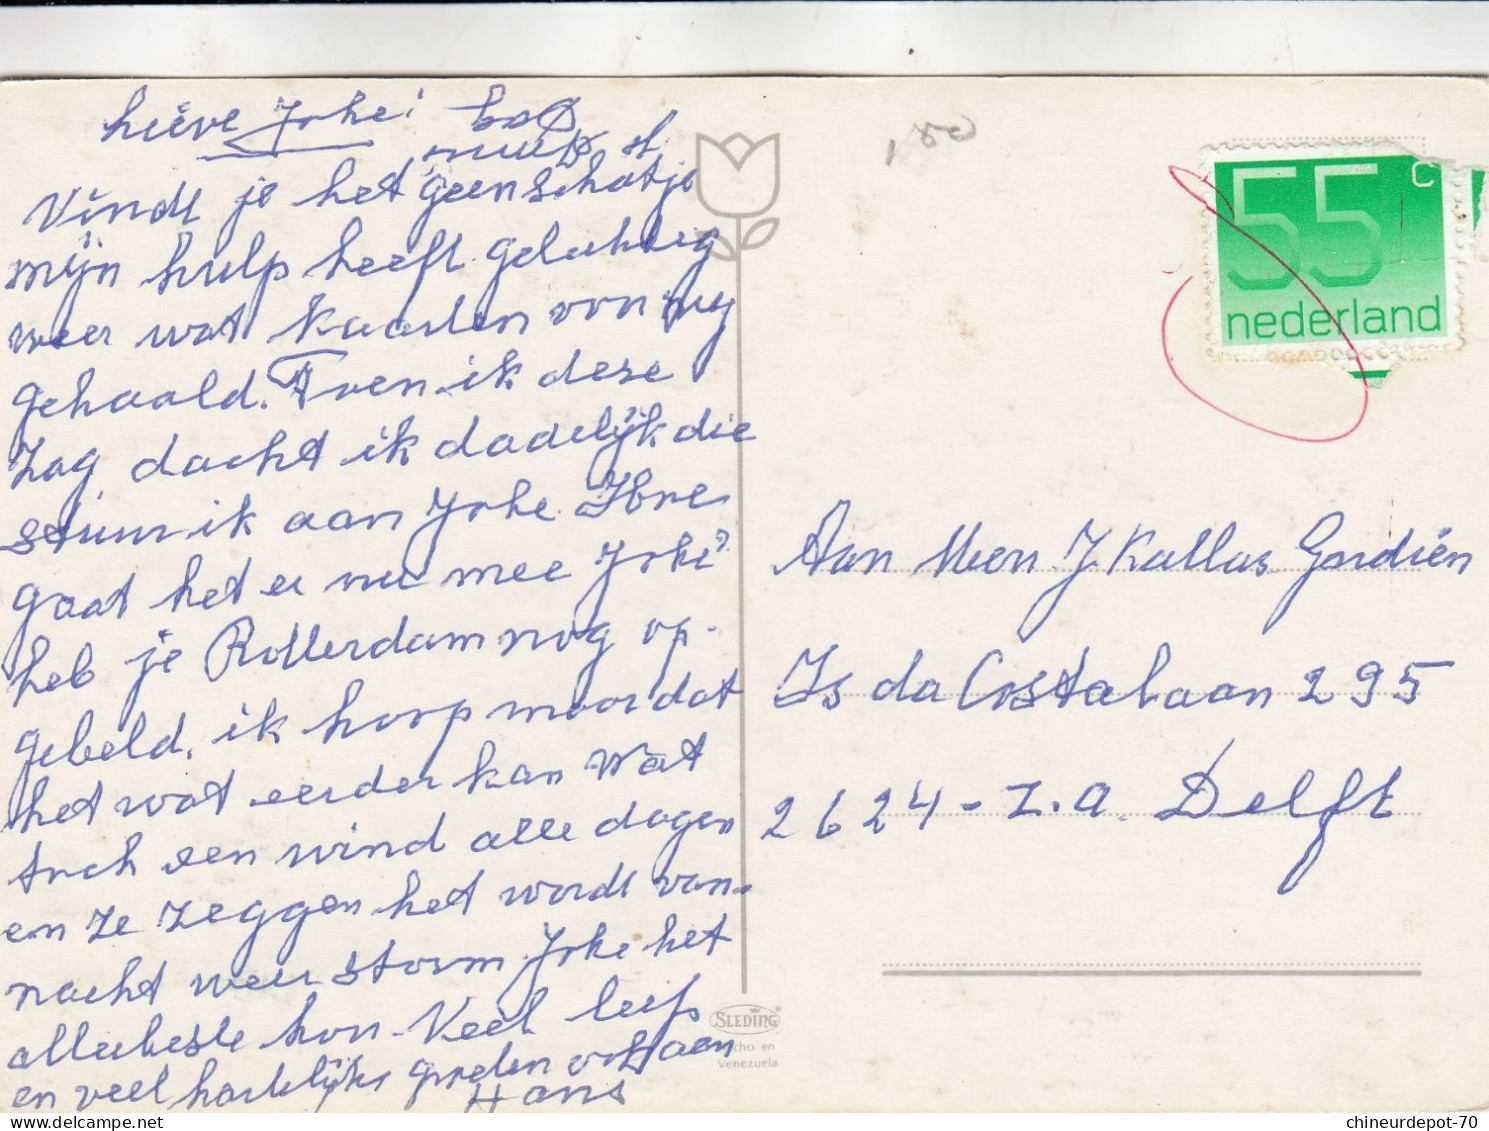 lieve Joke!
Vindt je het geen schatje
mijn hulp heeft gelukkig
weer wat kaarten voor mij
gehaald. Toen ik deze
zag dacht ik dadelijk die
stuur ik aan Joke
gaat het er nu mee Joke?
heb je Rotterdam nog op-
gebeld. ik hoop maar dat
het wat eerder kan Wat
toch een wind alle dagen
en ze zeggen het wordt van-
nacht weer storm Joke het
allerbeste hoor. Veel liefs
en veel hartelijke groeten
Hans
180
55 c
nederland
Aan Mevr. J. Kallas Gordiën
Is da Costalaan 295
2624-z.a. Delft
SLEDING®
cho en
Venezuela
chineurdepot-70